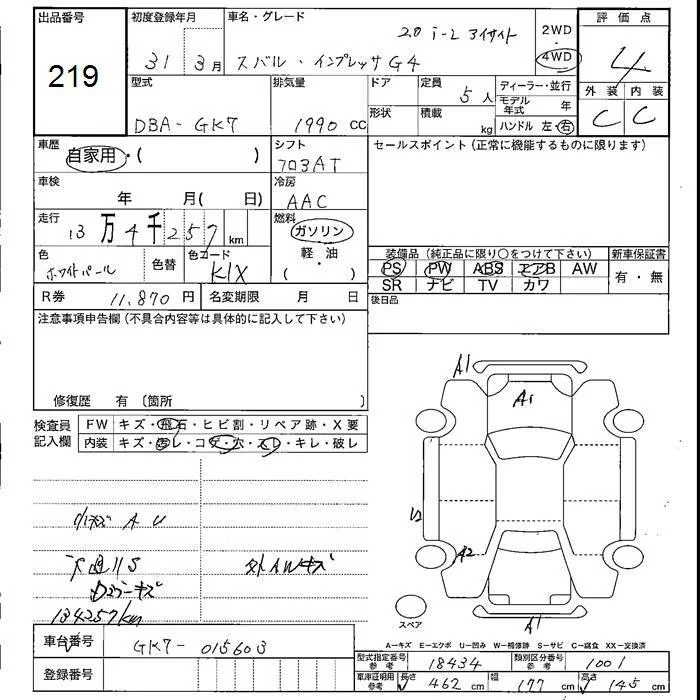 出品番号 219
初度登録年月 31年 3月
車名・グレード 2.0 i-L アイサイト
スバル・インプレッサG4
2WD・4WD
評価点 4
外装 C 内装 C
型式 DBA-GK7
排気量 1990 cc
ドア 定員 5人
形状 積載 kg
ディーラー・並行
モデル年式 年
ハンドル 左・右
車歴 自家用・( )
シフト フロアAT
セールスポイント(正常に機能するものに限ります)
車検 年 月( 日)
冷房 AAC
走行 13万4千257 km
燃料 ガソリン・軽油 ( )
色 ホワイトパール 色替 色コード K1X
装備品(純正品に限り○をつけて下さい) 新車保証書
PS PW ABS エアB AW 有・無
SR ナビ TV カワ
R券 11,870円 名変期限 月 日
後日品
注意事項申告欄(不具合内容等は具体的に記入して下さい)
修復歴 有 〔箇所 〕
検査員記入欄 FW キズ・飛石・ヒビ割・リペア跡・X要
内装 キズ・汚レ・コゲ・穴・スレ・キレ・破レ
A1
A1
U2
A2
A1
小キズ A U
下廻りS
外AWキズ
キズ
134257km
スペア
A-キズ E-エクボ U-凹み W-補修跡 S-サビ C-腐食 XX-交換済
車台番号 GK7-015603
型式指定番号 参考 18434 類別区分番号 参考 1001
登録番号
車庫証明用 参考 長さ 462 cm 幅 177 cm 高さ 145 cm